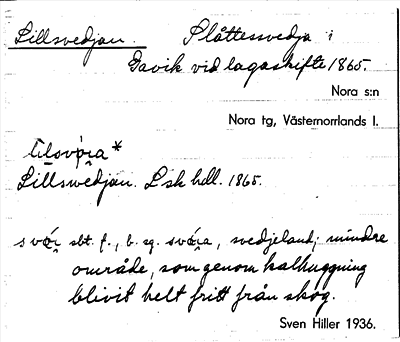 Lillsvedjan. Slåttesvedja i
Gavik vid lagaskifte 1865.
Nora s:n
Nora tg, Västernorrlands l.
lilsvóra*
Lillswedjan. Lsk hdl. 1865.
svór sbt. f., b. sg. svóra, svedjeland; mindre
område, som genom kalhuggning
blivit helt fritt från skog.
Sven Hiller 1936.